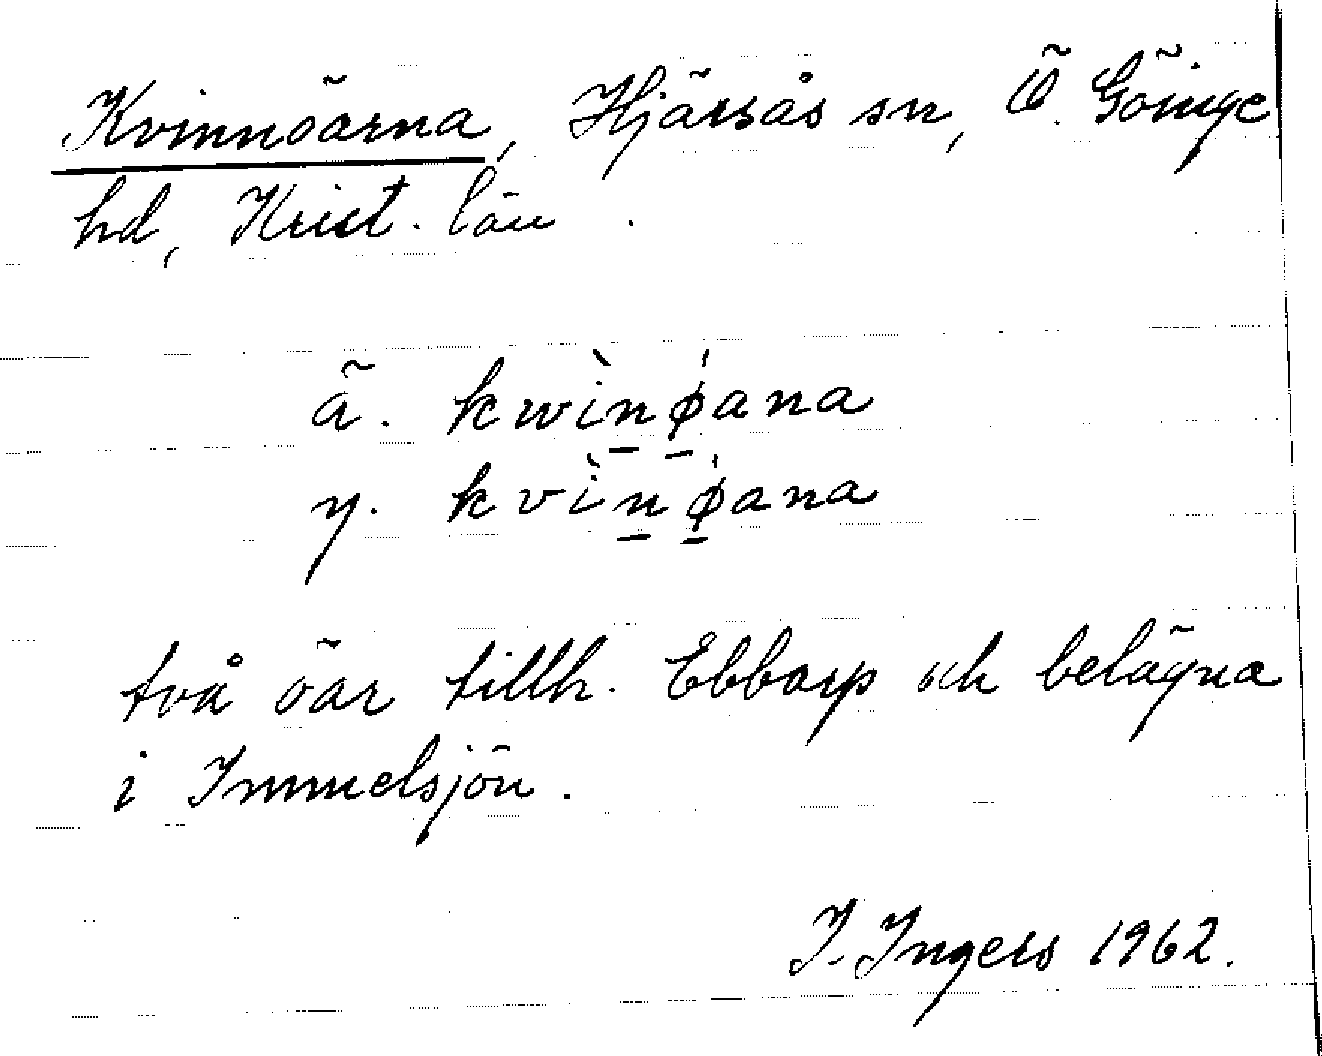 Kvinnöarna, Hjärsås sn, Ö. Göinge
hd, Krist. län.
ä. kwìn̲ǿ̲ana
y. kvìn̲ǿ̲ana
två öar tillh. Ebbarp och belägna
i Immelsjön.
I. Ingers 1962.